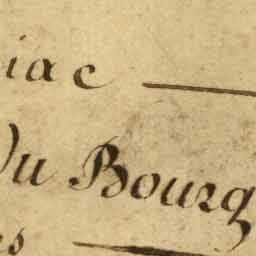 iac
Du Bourg
es